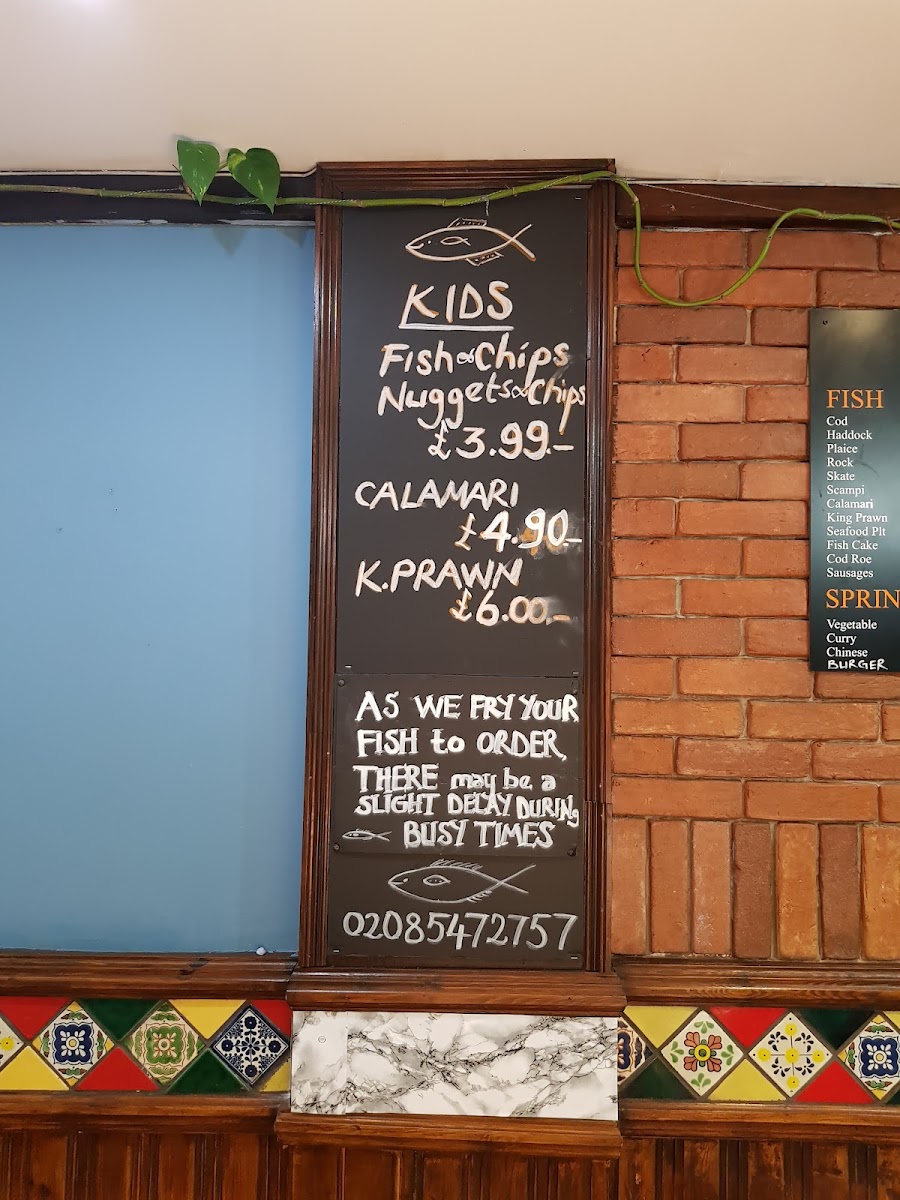 KIDS
Fish & Chips
Nuggets & Chips
£3.99.-
CALAMARI
£4.90.-
K.PRAWN
£6.00.-
AS WE FRY YOUR
FISH to ORDER,
THERE may be a
SLIGHT DELAY DURING
BUSY TIMES
02085472757
FISH
Cod
Haddock
Plaice
Rock
Skate
Scampi
Calamari
King Prawn
Seafood Plt
Fish Cake
Cod Roe
Sausages
SPRIN
Vegetable
Curry
Chinese
BURGER